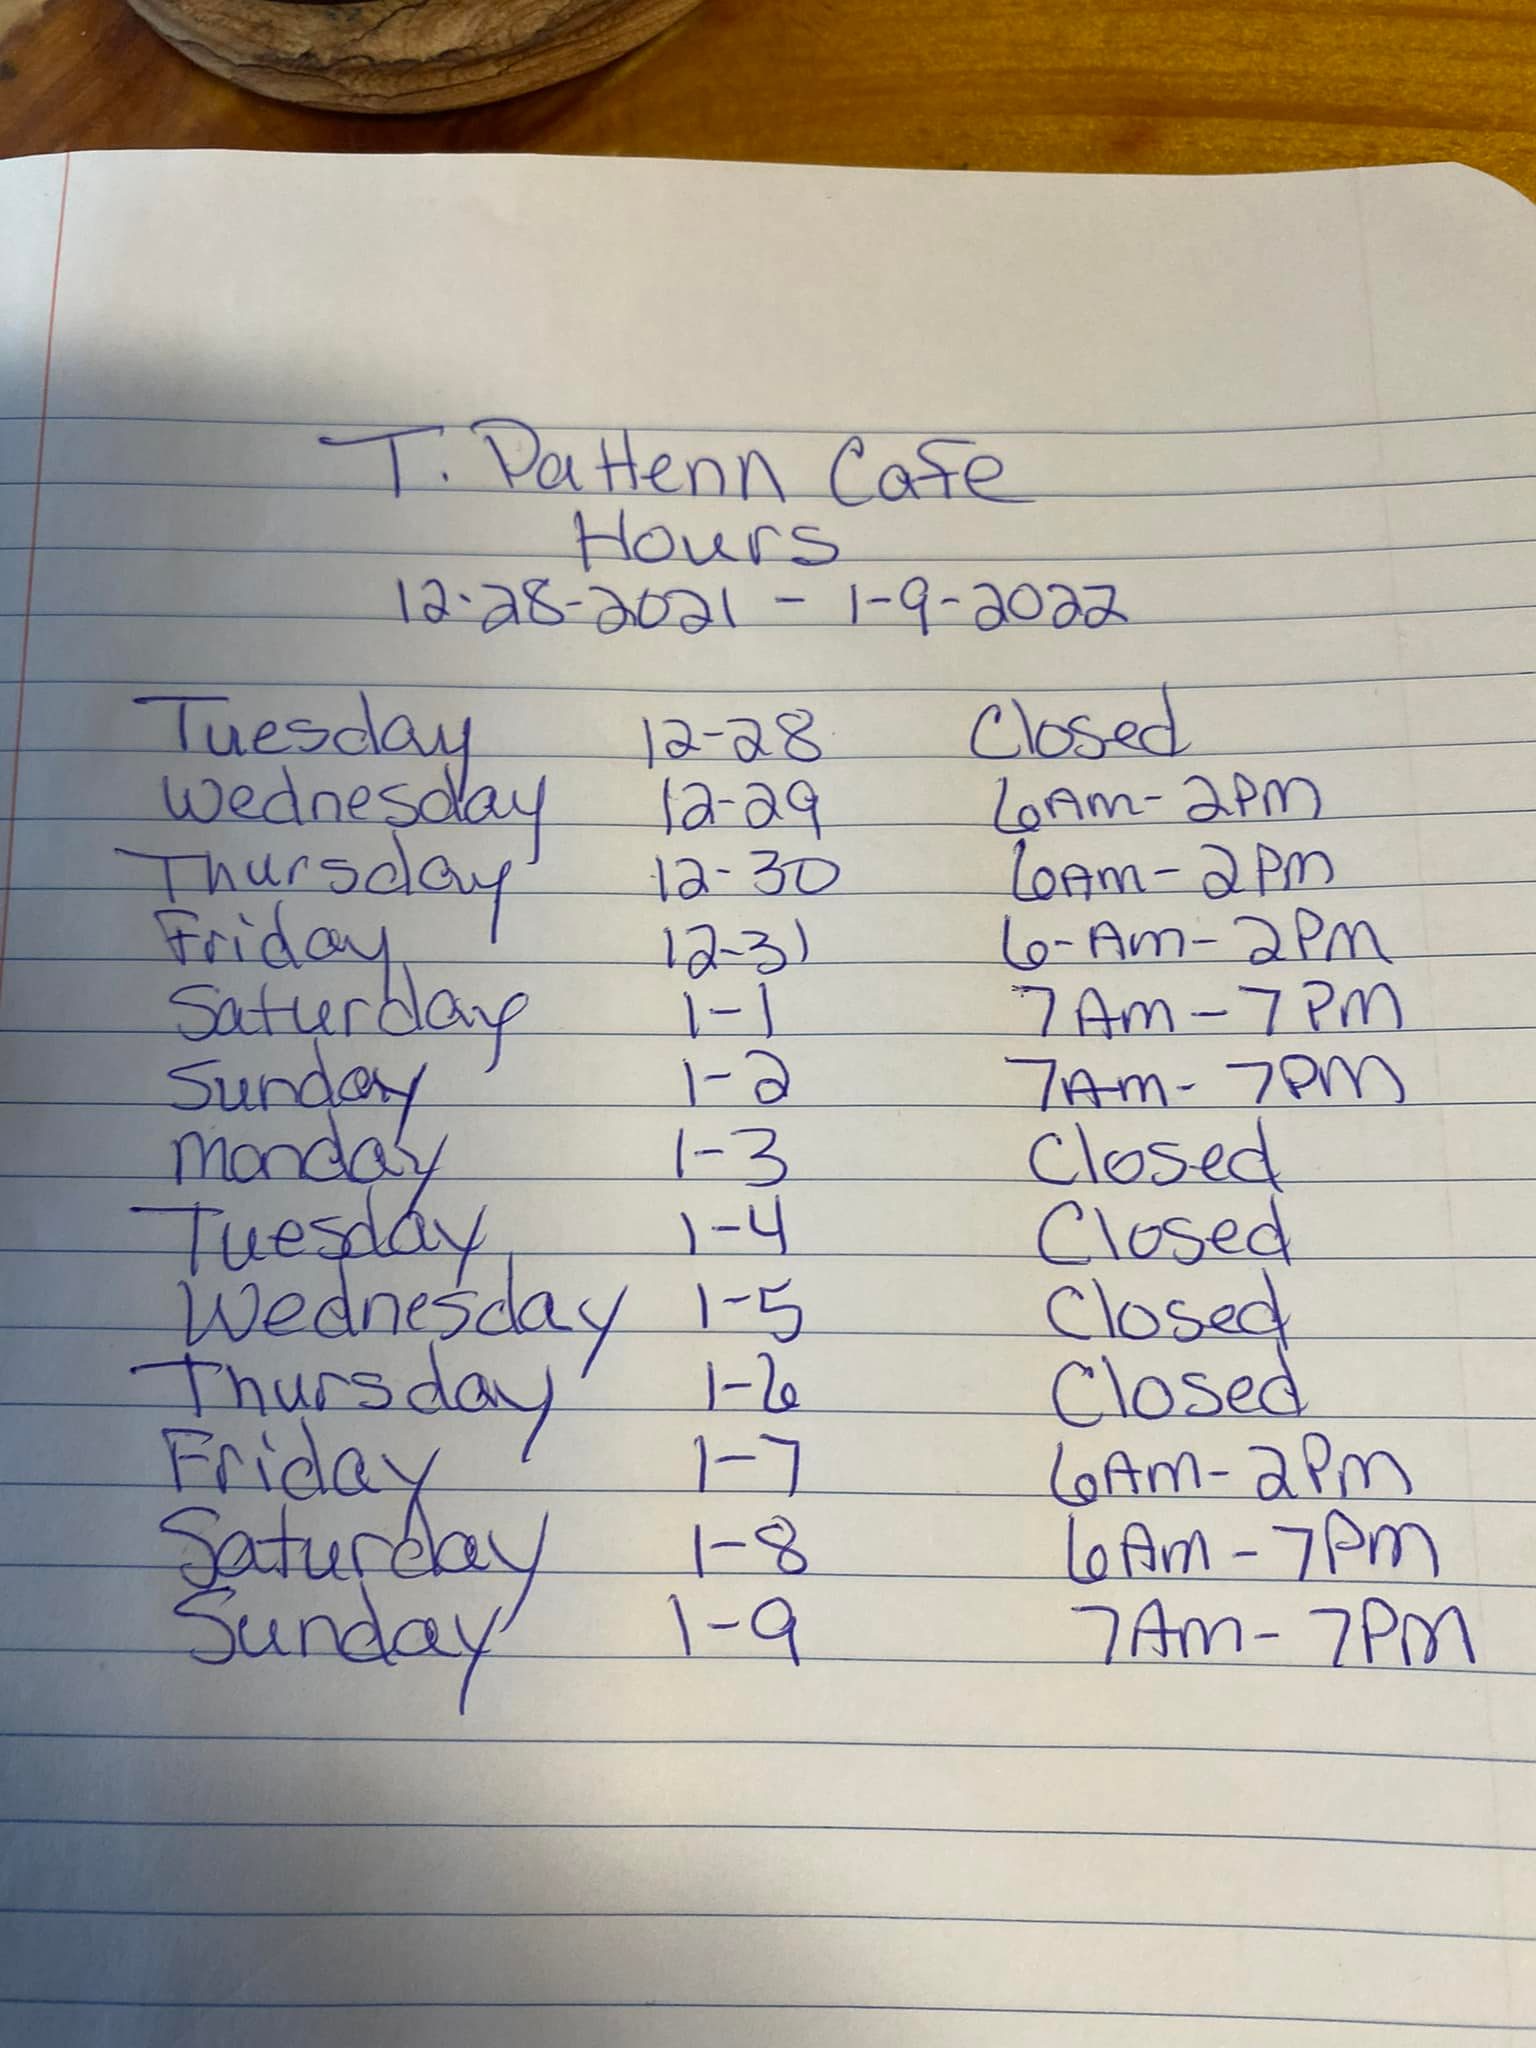 T. Pattenn Cafe
Hours
12-28-2021 - 1-9-2022
Tuesday 12-28 Closed
Wednesday 12-29 6AM-2PM
Thursday 12-30 6AM-2PM
Friday 12-31 6-AM-2PM
Saturday 1-1 7AM-7PM
Sunday 1-2 7AM-7PM
Monday 1-3 Closed
Tuesday 1-4 Closed
Wednesday 1-5 Closed
Thursday 1-6 Closed
Friday 1-7 6AM-2PM
Saturday 1-8 6AM-7PM
Sunday 1-9 7AM-7PM